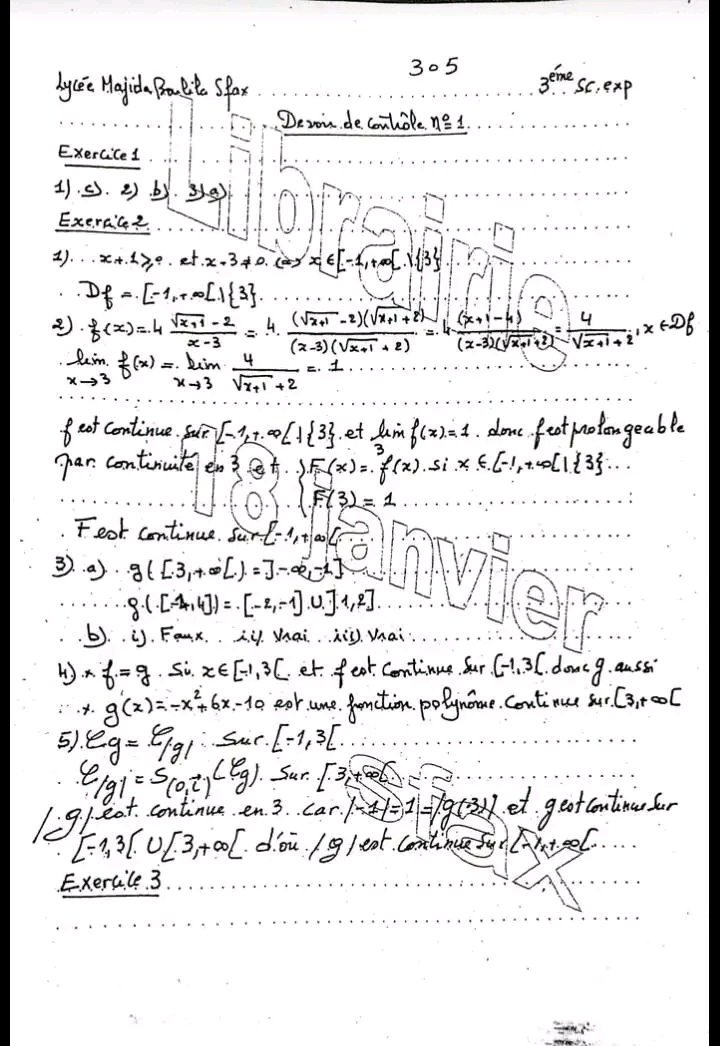 305
Lycée Majida Boulila Sfax 3éme Sc. exp
Devoir de contrôle n°1
Exercice 1
1) c) 2) b) 3) a)
Exercice 2
1) x+1 ≥ 0 et x-3 ≠ 0 <=> x ∈ [-1,+∞[ \ {3}
Df = [-1,+∞[ \ {3}
2) f(x) = 4 (√(x+1) - 2)/(x-3) = 4 ((√(x+1) - 2)(√(x+1) + 2))/((x-3)(√(x+1) + 2)) = 4 (x+1-4)/((x-3)(√(x+1) + 2)) = 4/(√(x+1) + 2), x ∈ Df
lim x→3 f(x) = lim x→3 4/(√(x+1) + 2) = 1
f est continue sur [-1,+∞[ \ {3} et lim 3 f(x) = 1 donc f est prolongeable
par continuité en 3 et { F(x) = f(x) si x ∈ [-1,+∞[ \ {3}
F(3) = 1
F est continue sur [-1,+∞[
3) a) g([3,+∞[) = ]-∞,-1]
g([-1,4]) = [-2,-1] ∪ ]1,2]
b) i) Faux ii) Vrai iii) Vrai
4) * f = g si x ∈ [-1,3[ et f est continue sur [-1,3[ donc g aussi
* g(x) = -x² + 6x - 10 est une fonction polynôme continue sur [3,+∞[
5) Cg = C|g| sur [-1,3[
C|g| = S(O,i) (Cg) sur [3,+∞[
|g| est continue en 3 car |-1| = 1 = |g(3)| et g est continue sur
[-1,3[ ∪ [3,+∞[ d'où |g| est continue sur [-1,+∞[
Exercice 3
Librairie
18 janvier
Sfax